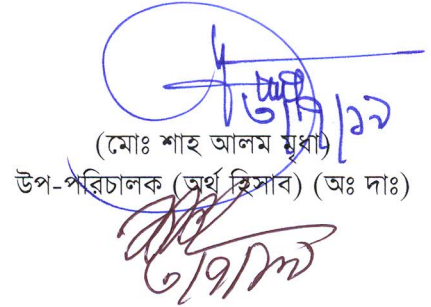 ৩/৭/১৯
(মোঃ শাহ আলম মৃধা)
উপ-পরিচালক (অর্থ হিসাব) (অঃ দাঃ)